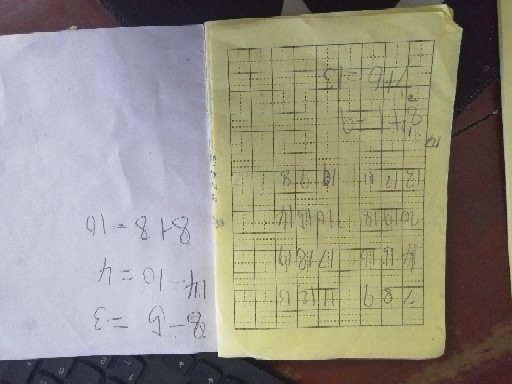 7 8 9 11 12 13
14 15 16 17 18 19
20 19 18 16 15 14
13 12 11 10 9 8
7+6=13
8-5=3
14-10=4
8+8=16